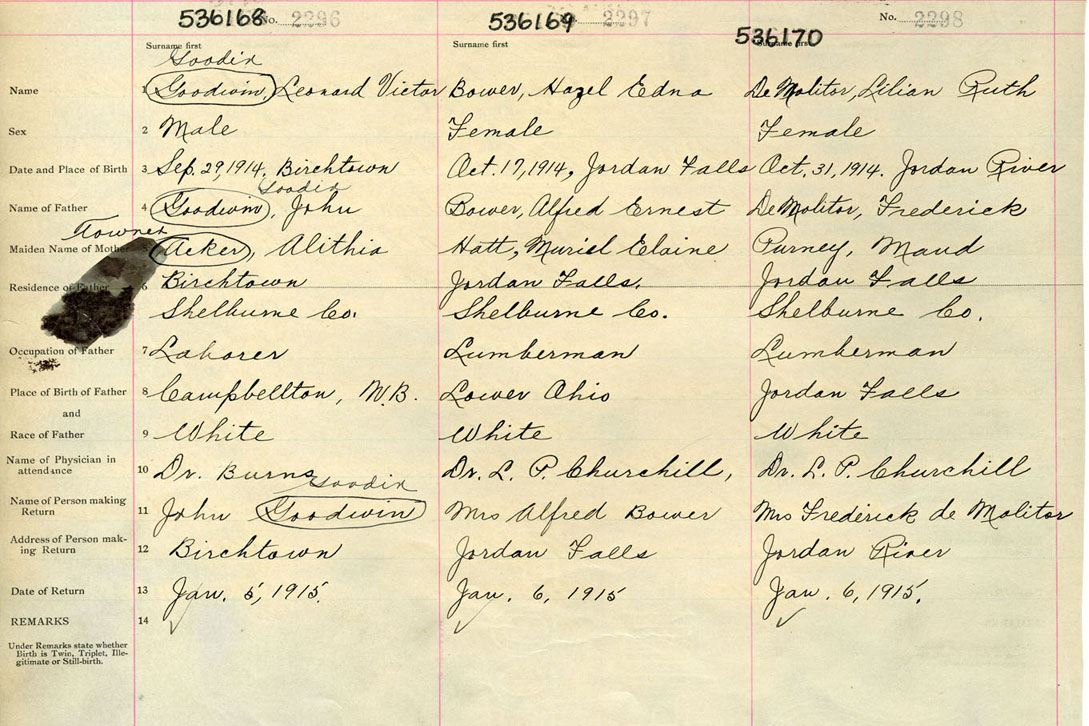 536168 No. 2296 536169 No. 2297 536170 No. 2298
Surname first Surname first Surname first
Goodin
Name 1 Goodwin, Leonard Victor Bower, Hazel Edna DeMolitor, Lilian Ruth
Sex 2 Male Female Female
Date and Place of Birth 3 Sep. 29, 1914, Birchtown Oct. 17, 1914, Jordan Falls Oct. 31, 1914. Jordan River
Goodin
Name of Father 4 Goodwin, John Bower, Alfred Ernest DeMolitor, Frederick
Maiden Name of Mother 5 Acker, Alithia Hatt, Muriel Elaine Purney, Maud
Residence of Father 6 Birchtown Jordan Falls. Jordan Falls
Shelburne Co. Shelburne Co. Shelburne Co.
Occupation of Father 7 Laborer Lumberman Lumberman
Place of Birth of Father 8 Campbellton, N.B. Lower Ohio Jordan Falls
and
Race of Father 9 White White White
Name of Physician in attendance 10 Dr. Burns Dr. L. P. Churchill, Dr. L. P. Churchill
Goodin
Name of Person making Return 11 John Goodwin Mrs Alfred Bower Mrs Frederick de Molitor
Address of Person mak-ing Return 12 Birchtown Jordan Falls Jordan River
Date of Return 13 Jan. 5, 1915. Jan. 6, 1915 Jan. 6, 1915.
REMARKS 14
Under Remarks state whether
Birth is Twin, Triplet, Ille-
gitimate or Still-birth.